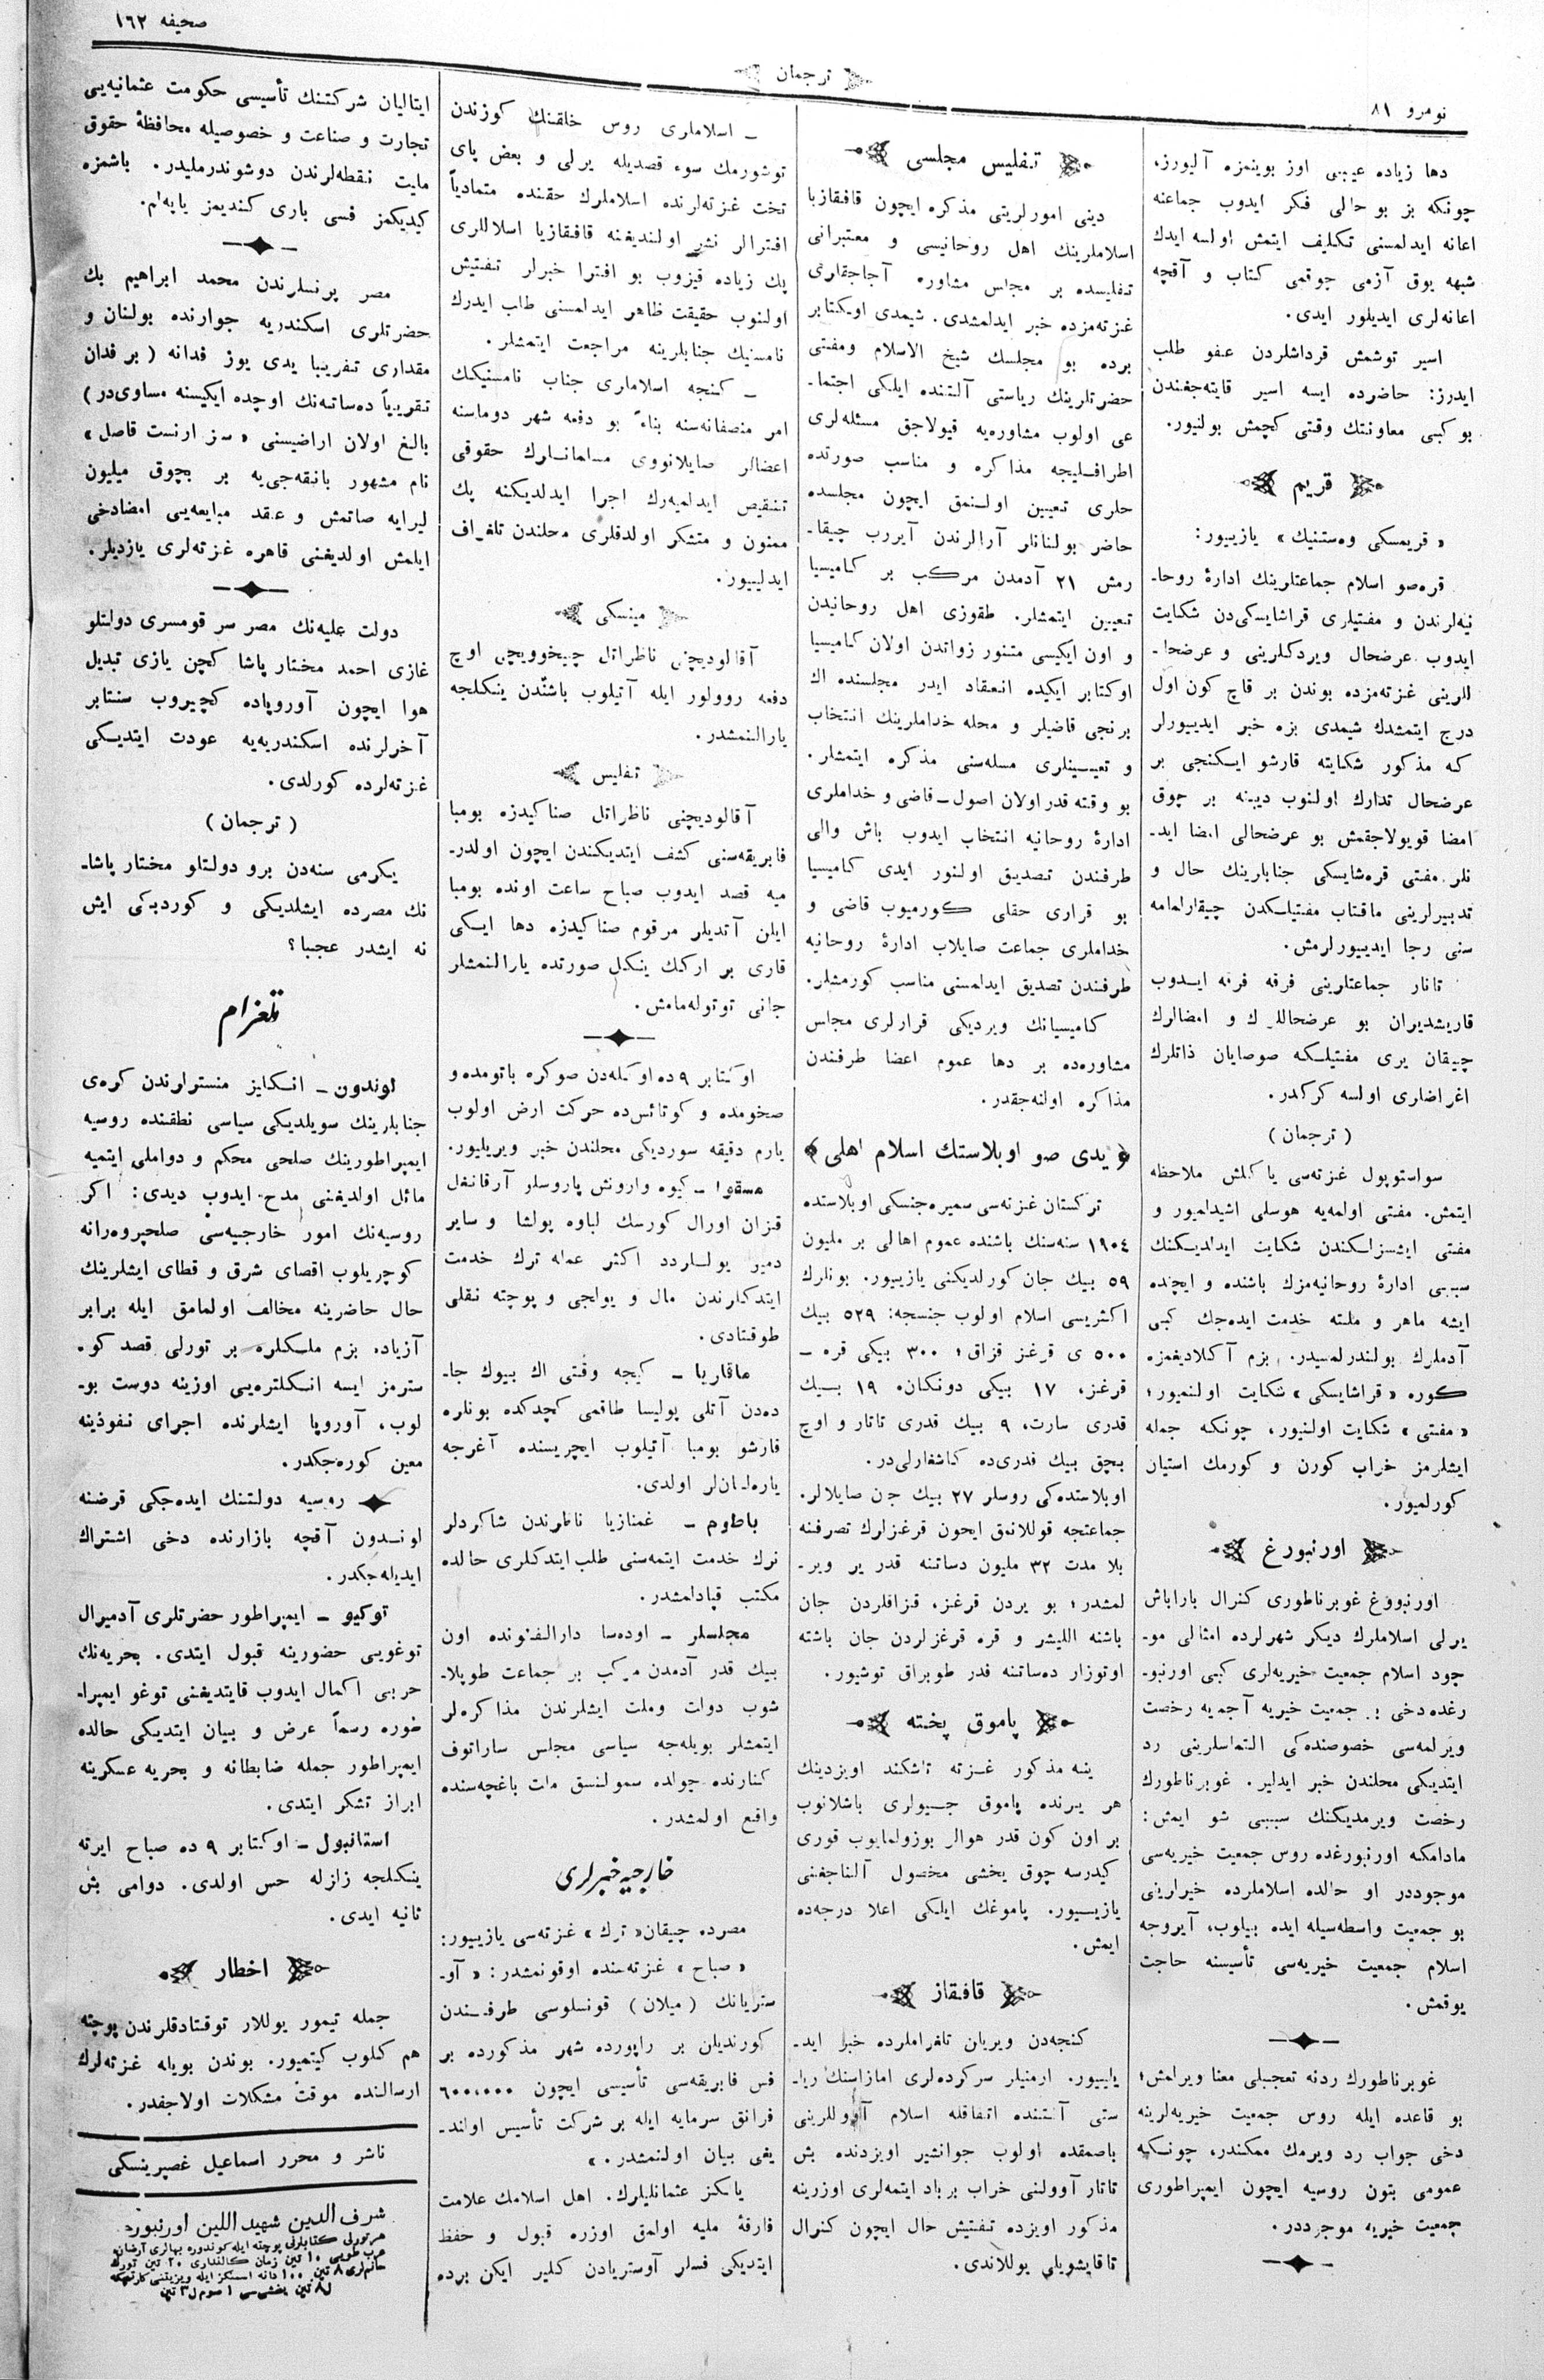 صحیفه ١٦٢
ترجمان
نومرو ٨١
دها زیاده عیبی اوز بوینمزه آلیورز،
چونکه بز بو حالی فکر ایدوب جماعته
اعانه ایدلمسنی تکلیف ایتمش اولسه ایدك
شبهه یوق آزمی چوقمی کتاب و آقچه
اعانه‌لری ایدیلور ایدی.
اسیر توشمش قرداشلردن عفو طلب
ایدرز: حاضرده ایسه اسیر قایته‌جغندن
بو کبی معاونتك وقتی کچمش بولنیور.
قریم
« قریمسکی وه‌ستنیك » یازییور:
قره‌صو اسلام جماعتلرینك ادارۀ روحا-
نیه‌لرندن و مفتیلری قراشایسکی‌دن شکایت
ایدوب عرضحال ویردکلرینی و عرضحا-
للرینی غزته‌مزده بوندن بر قاچ کون اول
درج ایتمشدك شیمدی بزه خبر ایدییورلر
که مذکور شکایته قارشو ایکنجی بر
عرضحال تدارك اولنوب دیینه بر چوق
امضا قویولاجقمش بو عرضحالی امضا اید-
نلر مفتی قره‌شایسکی جنابلرینك حال و
تدبیرلرینی ماقتاب مفتیلکدن چیقارلمامه
سنی رجا ایدییورلرمش.
تاتار جماعتلرینی فرقه فرقه ایدوب
قاریشدیران بو عرضحاللرك و امضالرك
چیقان یری مفتیلکه صوصایان ذاتلرك
اغراضاری اولسه کرکدر.
( ترجمان )
سواستوپول غزته‌سی یاکلش ملاحظه
ایتمش. مفتی اولمه‌یه هوسلی اشیدلمیور و
مفتی ایشسزلکندن شکایت ایدلدیکنك
سببی ادارۀ روحانیه‌مزك باشنده و ایچنده
ایشه ماهر و ملته خدمت ایده‌جك کبی
آدملرك بولندرلمسیدر. بزم آکلادیغمزه
کوره « قراشایسکی » شکایت اولنمیور؛
« مفتی » شکایت اولنیور، چونکه جمله
ایشلرمز خراب کورن و کورمك استیان
کورلمیور.
اورنبورغ
اورنبورغ غوبرناطوری کنرال باراباش
یرلی اسلاملرك دیکر شهرلرده امثالی مو-
جود اسلام جمعیت خیریه‌لری کبی اورنبو-
رغده دخی بر جمعیت خیریه آچمیه رخصت
ویرلمه‌سی خصوصنده‌کی التماسلرینی رد
ایتدیکی محلندن خبر ایدلیر. غوبرناطورك
رخصت ویرمدیکنك سببی شو ایمش:
مادامکه اورنبورغده روس جمعیت خیریه‌سی
موجوددر او حالده اسلاملرده خیرلرینی
بو جمعیت واسطه‌سیله ایده بیلوب، آیروجه
اسلام جمعیت خیریه‌سی تأسیسنه حاجت
یوقمش.
غوبرناطورك ردنه تعجبلی معنا ویرلمش؛
بو قاعده ایله روس جمعیت خیریه‌لرینه
دخی جواب رد ویرمك ممکندر، چونکه
عمومی بتون روسیه ایچون ایمپراطوری
جمعیت خیریه موجوددر.
تفلیس مجلسی
دینی امورلرینی مذکره ایچون قافقازیا
اسلاملرینك اهل روحانیسی و معتبرانی
تفلیسده بر مجلس مشاوره آچاجقلری
غزته‌مزده خبر ایدلمشدی. شیمدی اوکتابر
برده بو مجلسك شیخ الاسلام ومفتی
حضرتلرینك ریاستی آلتنده ایلکی اجتما-
عی اولوب مشاوره‌یه قیولاجق مسئله‌لری
اطرافلیجه مذاکره و مناسب صورتده
حلری تعیین اولنمق ایچون مجلسده
حاضر بولنانلر آرالرندن آیررب چیقا-
رمش ٢١ آدمدن مرکب بر کامیسیا
تعیین ایتمشلر. طقوزی اهل روحانیدن
و اون ایکیسی متنور زواتدن اولان کامیسیا
اوکتابر ایکیده انعقاد ایدر مجلسنده اك
برنجی قاضیلر و محله خداملرینك انتخاب
و تعیینلری مسله‌سنی مذکره ایتمشلر.
بو وقته قدر اولان اصول-قاضی و خداملری
ادارۀ روحانیه انتخاب ایدوب باش والی
طرفندن تصدیق اولنور ایدی کامیسیا
بو قراری حقلی کورمیوب قاضی و
خداملری جماعت صایلاب ادارۀ روحانیه
طرفندن تصدیق ایدلمسنی مناسب کورمشلر.
کامیسیانك ویردیکی قرارلری مجلس
مشاوره‌ده بر دها عموم اعضا طرفندن
مذاکره اولنه‌جقدر.
﴿ یدی صو اوبلاستك اسلام اهلی ﴾
ترکستان غزته‌سی سمیره‌چنسکی اوبلاستده
١٩٠٤ سنه‌سنك باشنده عموم اهالی بر ملیون
٥٩ بیك جان کورلدیکنی یازییور. بونلرك
اکثریسی اسلام اولوب جنسجه: ٥٢٩ بیك
٥٠٠ ی قرغز قزاق؛ ٣٠٠ بیکی قره -
قرغز، ١٧ بیکی دونکان، ١٩ بیك
قدری سارت، ٩ بیك قدری تاتار و اوچ
بچق بیك قدری‌ده کاشغارلی‌در.
اوبلاستده‌کی روسلر ٢٧ بیك جن صایلالر.
جماعتجه قوللانمق ایچون قرغزلرك تصرفنه
بلا مدت ٣٢ ملیون دساتنه قدر یر ویر-
لمشدر؛ بو یردن قرغز، قزاقلردن جان
باشنه اللیشر و قره قرغزلردن جان باشنه
اوتوزار ده‌ساتنه قدر طوبراق توشیور.
پاموق پخته
ینه مذکور غزته تاشکند اویزدینك
هر یرنده پاموق جیولری باشلانوب
بر اون کون قدر هوالر بوزولمایوب قوری
کیدرسه چوق یخشی محصول آلناجغنی
یازییور. پاموغك ایلکی اعلا درجه‌ده
ایمش.
قافقاز
کنجه‌دن ویریان تلغراملرده خبر اید-
یلییور. ارمنیلر سرکرده‌لری امازاسنك ریا-
ستی آلتنده اتفاقله اسلام آاووللرینی
باصمقده اولوب جوانشیر اویزدنده بش
تاتار آوولنی خراب برباد ایتمه‌لری اوزرینه
مذکور اویزده تفتیش حال ایچون کنرال
تاقایشویلی یوللاندی.
- اسلاملری روس خلقنك کوزندن
توشورمك سوء قصدیله یرلی و بعض پای
تخت غزته‌لرنده اسلاملرك حقنده متمادیاً
افترالر نشر اولندیغنه قافقازیا اسلاللری
پك زیاده قیزوب بو افترا خبرلر تفتیش
اولنوب حقیقت ظاهر ایدلمسنی طلب ایدرك
نامسنیك جنابلرینه مراجعت ایتمشلر.
- کنجه اسلاملری جناب نامسنیکك
امر منصفانه‌سنه بناءً بو دفعه شهر دوماسنه
اعضالر صایلانووی مسلمانلرك حقوقی
تنقیص ایدلمیه‌رك اجرا ایدلدیکنه پك
ممنون و متشکر اولدقلری محلندن تلغراف
ایدلییور.
مینسکی
آقالودیچنی ناظراتل چیخوویچی اوچ
دفعه روولور ایله آتیلوب باشندن ینکلجه
یارالنمشدر.
تفلیس
آقالودیچنی ناظراتل صناکیدزه بومبا
فابریقه‌سنی کشف ایتدیکندن ایچون اولدر-
میه قصد ایدوب صباح ساعت اونده بومبا
ایلن آتدیلر مرقوم صناکیدزه دها ایکی
قاری بر ارکك ینکل صورتده یارالنمشلر
جانی توتوله‌مامش.
اوکتابر ٩ ده اوکله‌دن صوکره باتومده و
صخومده و کوتائس‌ده حرکت ارض اولوب
یارم دقیقه سوردیکی محلندن خبر ویریلیور.
مسقوا - کیوه وارونش یاروسلر آرقانغل
قزان اورال کورسك لباوه پولشا و سایر
دمیر یوللاردد اکثر عمله ترك خدمت
ایتدکلرندن مال و یولجی و پوچته نقلی
طوقتادی.
ماقاریا - کیجه وقتی اك بیوك جا-
ده‌دن آتلی پولیسا طاقمی کچدکده بونلره
قارشو بومبا آتیلوب ایچریسنده آغرجه
یاره‌لانلر اولدی.
باطوم - غمنازیا ناظرندن شاکردلر
ترك خدمت ایتمه‌سنی طلب ایتدکلری حالده
مکتب قپادلمشدر.
مجلسلر - اوده‌سا دارالفنونده اون
بیك قدر آدمدن مرکب بر جماعت طوپلا-
شوب دولت وملت ایشلرندن مذاکره‌لر
ایتمشلر بویله‌جه سیاسی مجلس ساراتوف
کنارنده چولده سمولنسق مات باغچه‌سنده
واقع اولمشدر.
خارجیه خبرلری
مصرده چیقان « ترك » غزته‌سی یازییور:
« صباح » غزته‌سنده اوقونمشدر: « آو-
ستریانك ( میلان ) قونسلوسی طرفندن
کورندیلن بر راپورده شهر مذکورده بر
فس فابریقه‌سی تأسیسی ایچون ٦٠٠،٠٠٠
فرانق سرمایه ایله بر شرکت تأسیس اولند-
یغی بیان اولنمشدر. »
یاکز عثمانلیلرك. اهل اسلامك علامت
فارقۀ ملیه اولمق اوزره قبول و حفظ
ایتدیکی فسلر آوستریادن کلیر ایکن برده
ایتالیان شرکتنك تأسیسی حکومت عثمانیه‌یی
تجارت و صناعت و خصوصیله محافظۀ حقوق
ملیت نقطه‌لرندن دوشوندرملیدر. باشمزه
کیدیکمز فسی باری کندیمز یاپه‌لم.
مصر پرنسلرندن محمد ابراهیم بك
حضرتلری اسکندریه جوارنده بولنان و
مقداری تقریبا یدی یوز فدانه ( بر فدان
تقریباً ده‌ساتنه‌نك اوچده ایکیسنه مساوی‌در )
بالغ اولان اراضیسنی « سز ارنست قاصل »
نام مشهور بانقه‌جی‌یه بر بچوق میلیون
لیرایه صاتمش و عقد مبایعه‌یی امضادخی
ایلمش اولدیغنی قاهره غزته‌لری یازدیلر.
دولت علیه‌نك مصر سر قومسری دولتلو
غازی احمد مختار پاشا کچن یازی تبدیل
هوا ایچون آوروپاده کچیروب سنتابر
آخرلرنده اسکندریه‌یه عودت ایتدیکی
غزته‌لرده کورلدی.
( ترجمان )
یکرمی سنه‌دن برو دولتلو مختار پاشا-
نك مصرده ایشلدیکی و کوردیکی ایش
نه ایشدر عجبا؟
تلغرام
لوندون - انکلیز منسترلرندن کره‌ی
جنابلرینك سویلدیکی سیاسی نطقنده روسیه
ایمپراطورینك صلحی محکم و دواملی ایتمیه
مائل اولدیغنی مدح ایدوب دیدی: اکر
روسیه‌نك امور خارجیه‌سی صلحپروه‌رانه
کوچریلوب اقصای شرق و قطای ایشلرینك
حال حاضرینه مخالف اولمامق ایله برابر
آزیاده بزم ملکلره بر تورلی قصد کو-
سترمز ایسه انکلتره‌یی اوزینه دوست بو-
لوب، آوروپا ایشلرنده اجرای نفوذینه
معین کوره‌جکدر.
روسیه دولتنك ایده‌جکی قرضنه
لوندون آقچه بازارنده دخی اشتراك
ایدیله‌جکدر.
توکیو - ایمپراطور حضرتلری آدمیرال
توغویی حضورینه قبول ایتدی. بحریه‌نك
حربی اکمال ایدوب قایتدیغنی توغو ایمپرا-
طوره رسماً عرض و بیان ایتدیکی حالده
ایمپراطور جمله ضابطانه و بحریه عسکرینه
ابراز تشکر ایتدی.
استانبول - اوکتابر ٩ ده صباح ایرته
ینکلجه زلزله حس اولدی. دوامی بش
ثانیه ایدی.
اخطار
جمله تیمور یوللار توقتادقلرندن پوچته
هم کلوب کیتمیور. بوندن بویله غزته‌لرك
ارسالنده موقت مشکلات اولاجقدر.
ناشر و محرر اسماعیل غصپرینسکی
شرف الدین شهید اللین اورنبورد.
هرتورلی کتابلرنی پوچته ایله کوندوره بهالری آرشان
عرب طوبی ١٠ تین زمان کالنداری ٢٠ تین تورك
خانملری ٨ تین ١٠٠ دانه اسمکز ایله ویزیتنی کارتچکه
٨ تین یخشی‌سی ١ صوم ٣ تین